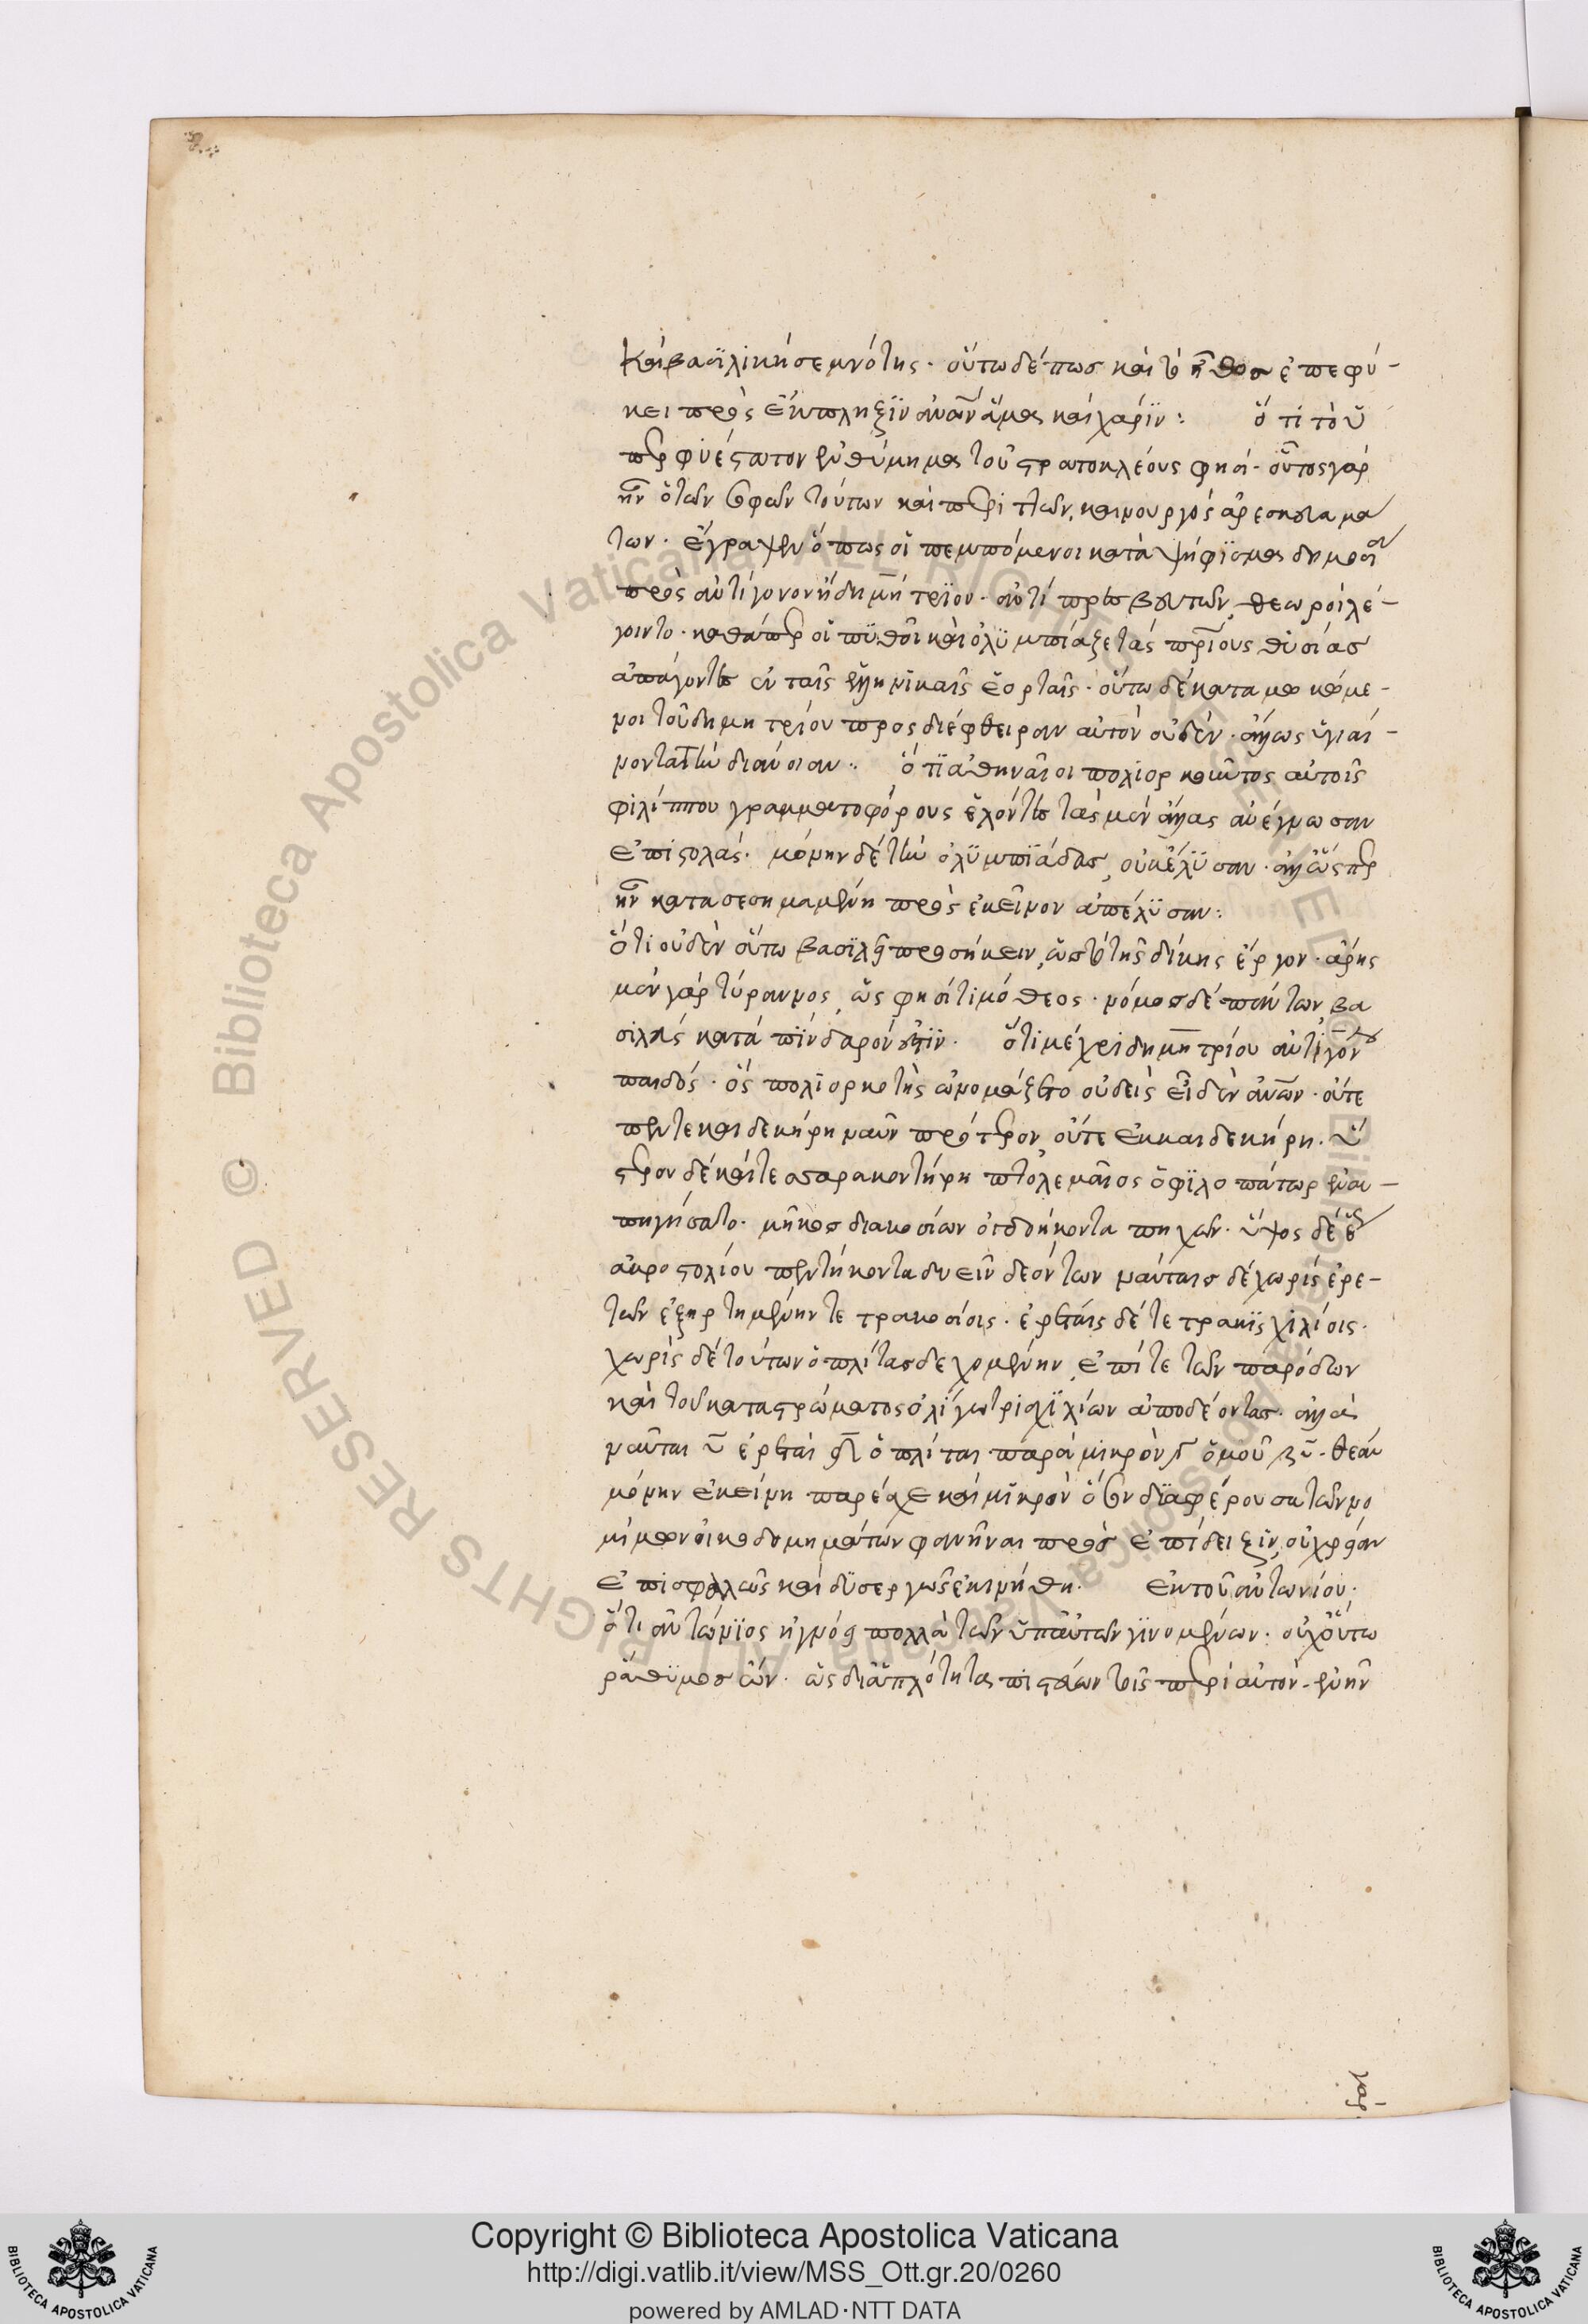 και βασϊλικὴ σεμνότης· οὕτω δέ πως καὶ τὸ ἦθος ἐπεφύ-
κει πρὸς ἔκπληξϊν ἀν̅ων̅ ἅμα καὶ χάρϊν: ὅτι τὸ ὑ
περφυέστατον ἐνθύμημα τοῦ στρατοκλέους φησί· οὗτος γάρ
ἦν ὁ τῶν σοφῶν τούτων καὶ περιττῶν, καινουργὸς ἀρεσκευμά
των· ἔγραψεν ὅπως οἱ πεμπόμενοι κατὰ ψήφϊσμα δημοσίᾳ
πρὸς ἀντίγονον ἢ δημήτρϊον· ἀντὶ πρεσβευτῶν, θεωροὶ λέ-
γοιντο· καθάπερ οἱ πϋθοῖ καὶ ὀλϋμπίαζε τὰς πατρίους θϋσίας
ἀπάγοντες ἐν ταῖς ἑλληνϊκαῖς ἑορταῖς· οὕτω δὲ καταμωκώμε-
νοι τοῦ δημητρίου προσδιέφθειραν αὐτὸν οὐδὲν· ἄλλως ὑγιαί-
νοντα τὴν διάνοιαν: ὅτϊ ἀθηναῖοι πολιορκοῦντος αὐτοῖς
φιλίππου γραμματοφόρους ἑλόντες τὰς μὲν ἄλλας ἀνέγνωσαν
ἐπιστολάς· μόνην δὲ τὴν ὀλϋμπϊάδος, οὐκ ἔλϋσαν· ἀλλ' ὥσπερ
ἦν κατασεσημαμένη πρὸς ἐκεῖνον ἀπέλϋσαν:
ὅτι οὐδὲν οὕτω βασϊλεῖ προσήκειν, ὡς τὸ τῆς δίκης ἔργον· ἄρης
μὲν γὰρ τύραννος, ὥς φησι τιμόθεος· νόμος δὲ πάντων, βα
σιλεὺς κατὰ πϊνδαρόν ἐστϊν· ὅτι μέχρι δημητρίου ἀντιγόνου
παιδός· ὃς πολϊορκητὴς ὠνομάζετο οὐδεὶς εἶδεν ἀν̅ων̅· οὔτε
πεντεκαιδεκήρη ναῦν πρότερον, οὔτε ἑκκαιδεκήρη· ὕ
στερον δὲ καὶ τεσσαρακοντήρη πτολεμαῖος ὁ φϊλοπάτωρ ἐναυ-
πηγήσατο· μῆκος διακοσίων ὀγδοήκοντα πηχῶν· ὕψος δὲ ἕως
ἀκροστολίου πεντήκοντα δυεῖν δεόντων ναύταις δὲ χωρὶς ἐρε-
τῶν ἐξηρτημένην τετρακοσίοις· ἐρέταις δὲ τετρακϊς χϊλίοις·
χωρὶς δὲ τούτων ὁπλίτας δεχομένην, ἐπί τε τῶν παρόδων
καὶ τοῦ καταστρώματος ὀλίγω τρισχϊλίων ἀποδέοντας· ἀλλὰ
ναῦται ῡ ἐρέται ͵δ ὁπλίται παρὰ μικρὸν ͵γ ὁμοῦ ͵ζῡ· θέαν
μόνην ἐκείνη παρέσχε καὶ μϊκρὸν ὅσον δϊαφέρουσα τῶν μο
νίμων οἰκοδομημάτων φανῆναι πρὸς ἐπίδειξϊν, οὐ χρείαν
ἐπισφαλῶς καὶ δϋσεργῶς ἐκινήθη· ἐκ τοῦ ἀντωνίου·
ὅτι ἀντώνϊος ἠγνόει πολλὰ τῶν ὑπ' αὐτῶν γϊνομένων· οὐχ οὕτω
ράθϋμος ὢν· ὡς δι' ἁπλότητα πιστεύων τοῖς περὶ αὐτόν· ἐνῆν
γαρ
Copyright © Biblioteca Apostolica Vaticana
http://digi.vatlib.it/view/MSS_Ott.gr.20/0260
powered by AMLAD·NTT DATA